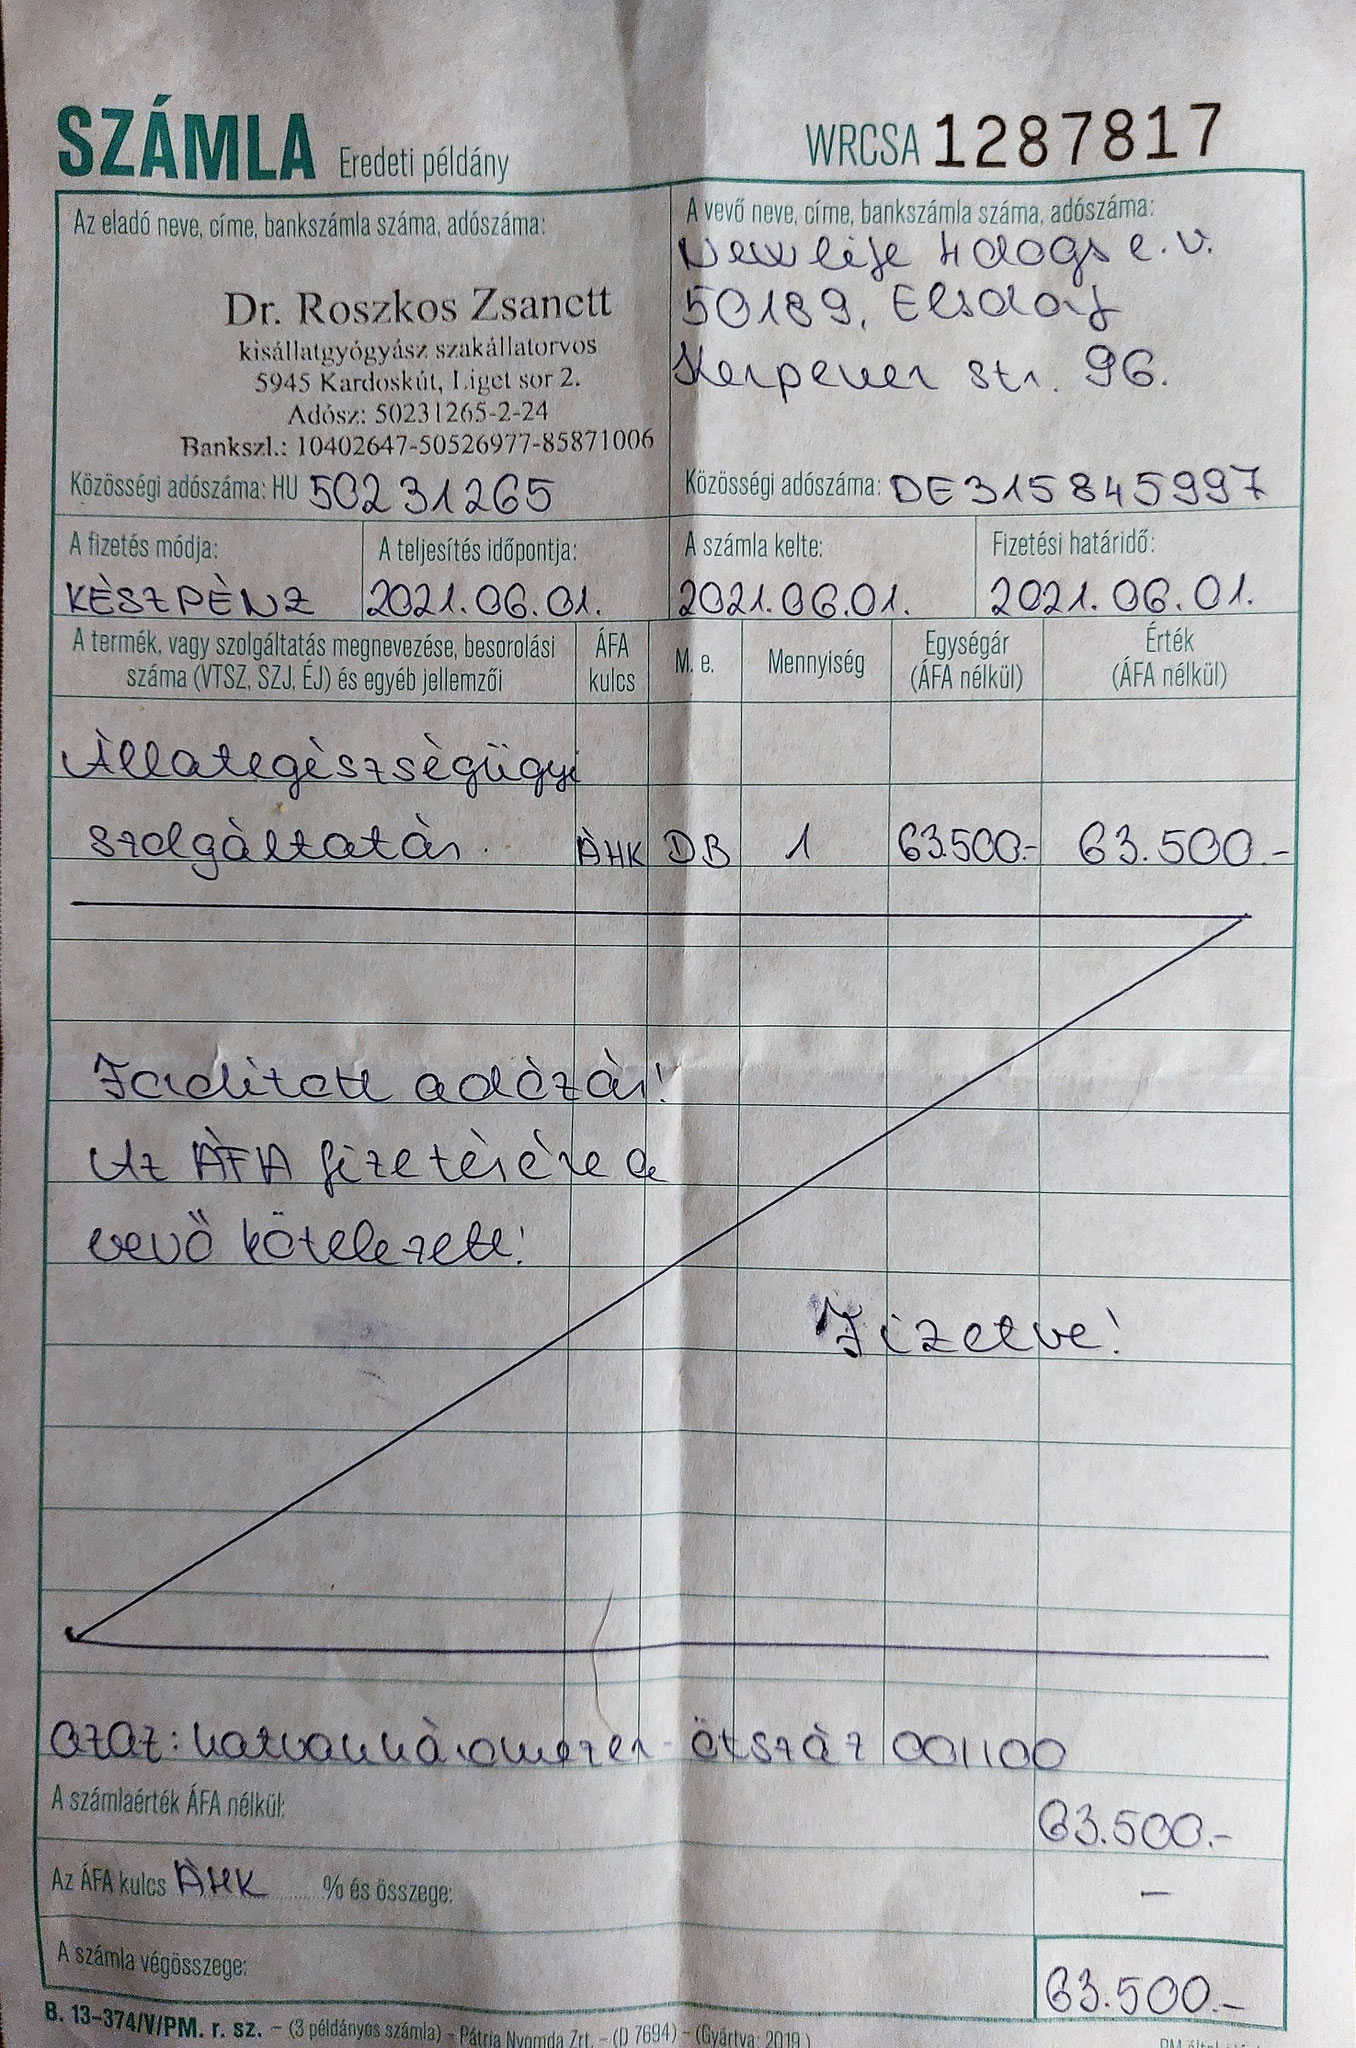 SZÁMLA Eredeti példány
WRCSA 1287817
Az eladó neve, címe, bankszámla száma, adószáma:
Dr. Roszkos Zsanett
kisállatgyógyász szakállatorvos
5945 Kardoskút, Liget sor 2.
Adósz: 50231265-2-24
Bankszl.: 10402647-50526977-85871006
Közösségi adószáma: HU 50231265
A vevő neve, címe, bankszámla száma, adószáma:
New life 4 dogs e.v.
50189, Elsdorf
Kerpener str. 96.
Közösségi adószáma: DE315845997
A fizetés módja:
KÈSZPÈNZ
A teljesítés időpontja:
2021.06.01.
A számla kelte:
2021.06.01.
Fizetési határidő:
2021.06.01.
A termék, vagy szolgáltatás megnevezése, besorolási
száma (VTSZ, SZJ, ÉJ) és egyéb jellemzői
ÁFA
kulcs
M. e.
Mennyiség
Egységár
(ÁFA nélkül)
Érték
(ÁFA nélkül)
Àllategèszsègügyi
szolgàltatàs. ÀHK DB 1 63.500.- 63.500.-
Fordított adòzàs!
Az ÀFA fizetèsère a
vevő kötelezett!
Fizetve!
azaz: hatvanhàromezer-ötszàz 00/100
A számlaérték ÁFA nélkül: 63.500.-
Az ÁFA kulcs ÀHK % és összege: –
A számla végösszege: 63.500.-
B. 13-374/V/PM. r. sz. – (3 példányos számla) – Pátria Nyomda Zrt. – (D 7694) – (Gyártva: 2019.)